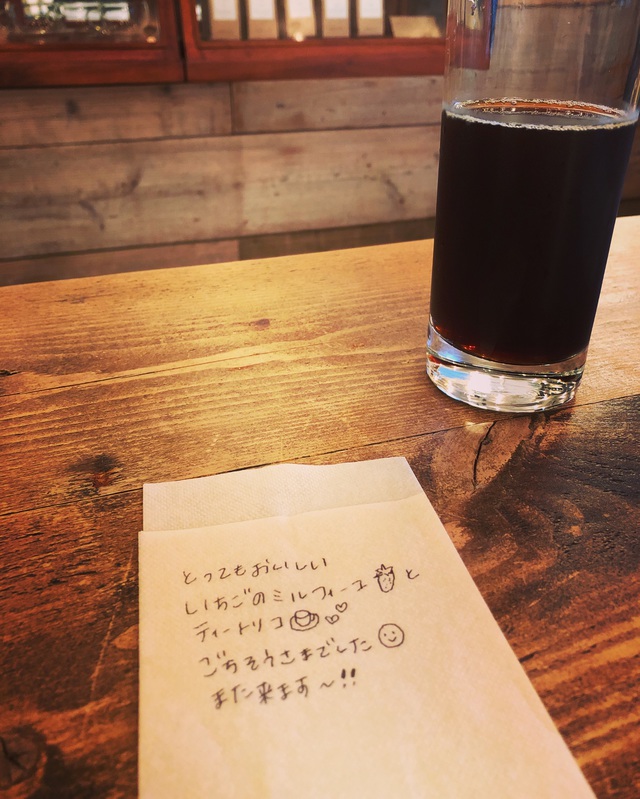 とってもおいしい
いちごのミルフィーユと
ティートリコ
ごちそうさまでした
また来ます〜!!